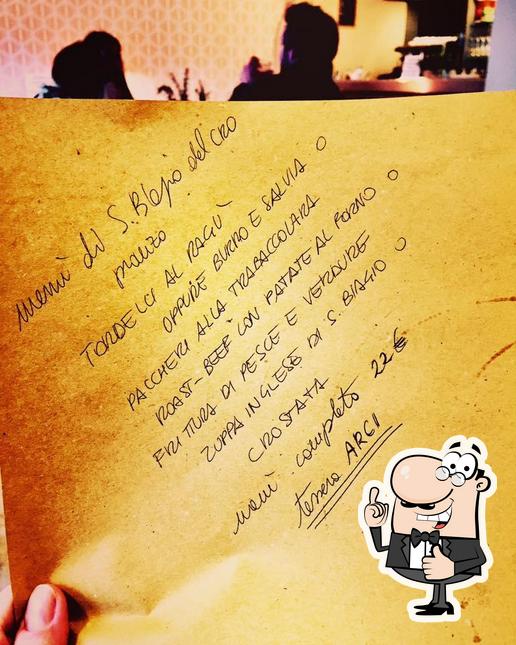 menù di S. Biagio del CRO
pranzo
TORDELCI AL RAGÙ
OPPURE BURRO E SALVIA O
PACCHERI ALLA TRABACCOLARA
ROAST-BEEF CON PATATE AL FORNO O
FRITTURA DI PESCE E VERDURE
ZUPPA INGLESE DI S. BIAGIO O
CROSTATA
menù completo 22 €
tessera ARCI